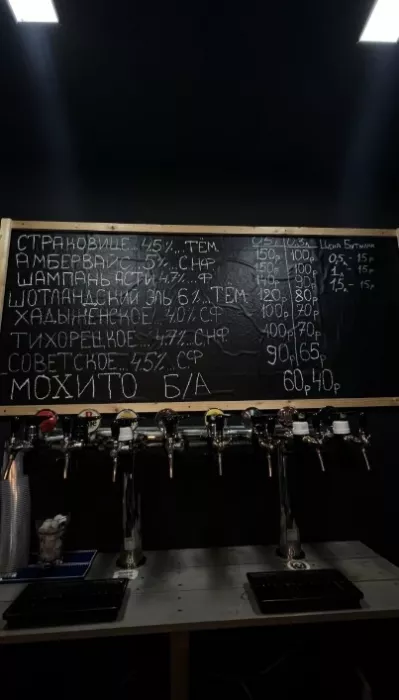 СТРАКОВИЦЕ... 4.5%... ТЁМ 150р 100р
АМБЕРВАЙС 5%. СНФ 150р 100р
ШАМПАНЬ АСТИ 4.7%.. Ф 90р
ШОТЛАНДСКИЙ ЭЛЬ 6%.. ТЁМ 120р 80р
ХАДЫЖЕНСКОЕ 4.0% СФ 100р 70р
ТИХОРЕЦКОЕ.. 4.7%.. СНФ 100р 70р
СОВЕТСКОЕ.. 4.5%.. СФ 90р 65р
МОХИТО Б/А 60р 40р
Цена Бутылки
0,5 - 15р
1 - 15р
1,5 - 15р